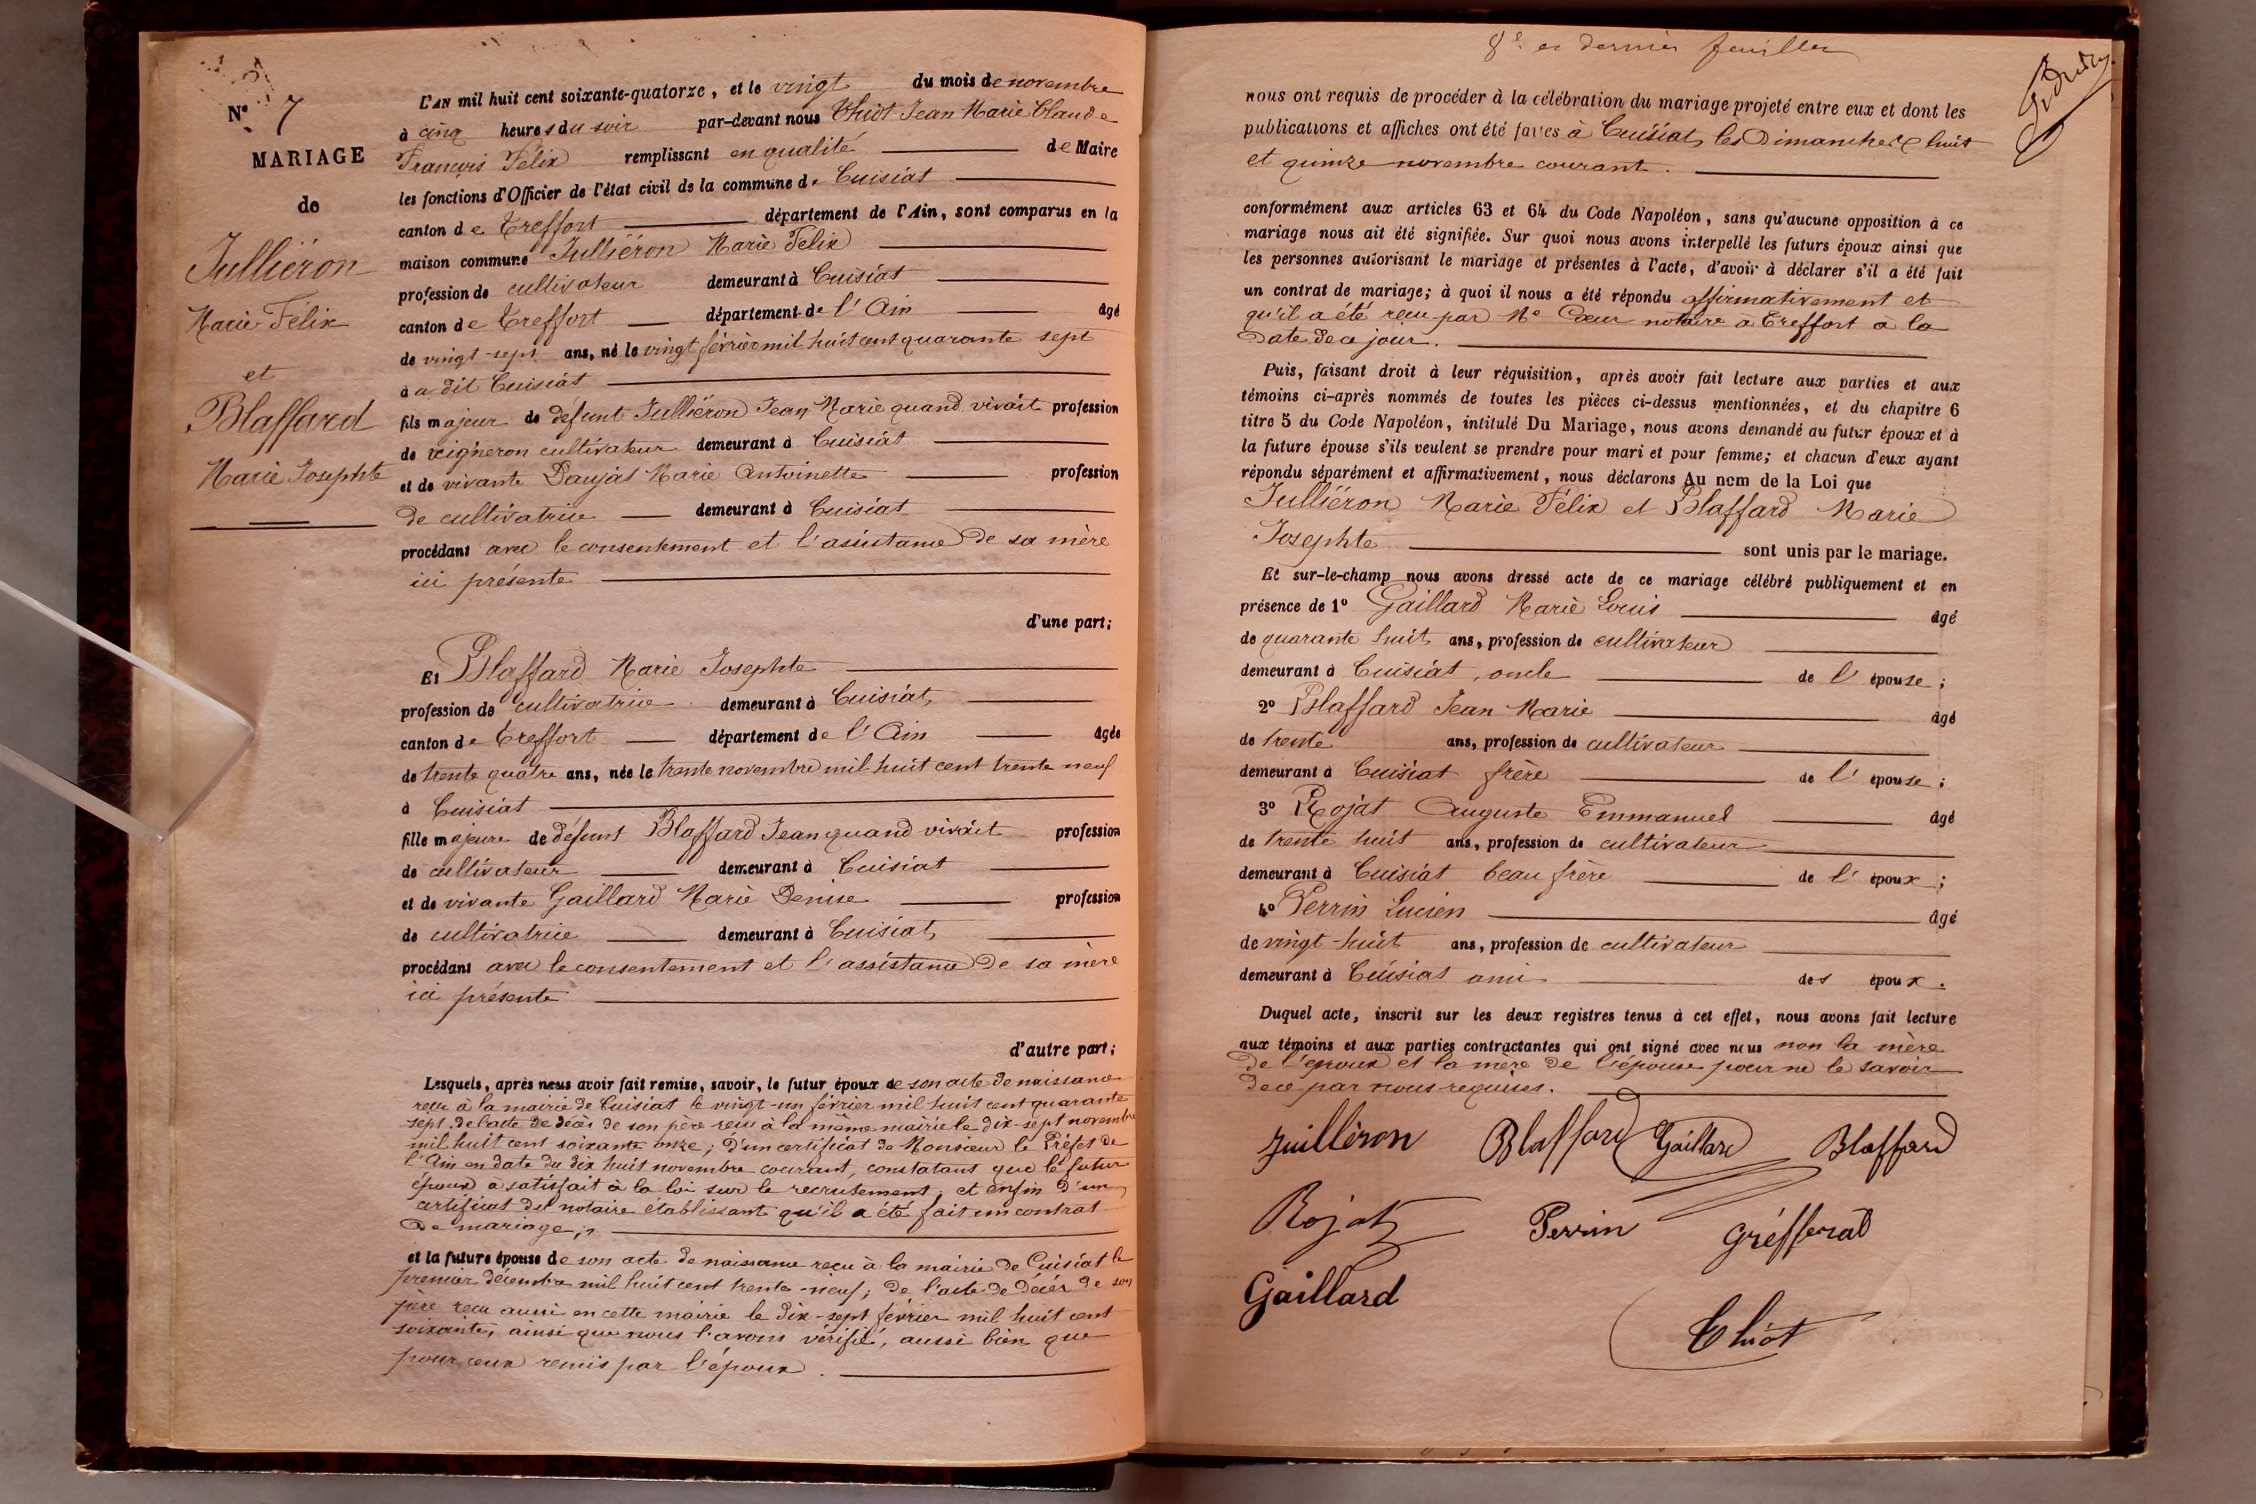 N° 7
MARIAGE
de
Julliéron
Marie Félix
et
Blaffard
Marie Josephte
L'AN mil huit cent soixante-quatorze, et le vingt du mois de novembre
à cinq heures du soir par-devant nous Chiot Jean Marie Claude
François Félix remplissant en qualité de Maire
les fonctions d'Officier de l'état civil de la commune de Cuisiat
canton de Treffort département de l'Ain, sont comparus en la
maison commune Julliéron Marie Félix
profession de cultivateur demeurant à Cuisiat
canton de Treffort département de l'Ain âgé
de vingt-sept ans, né le vingt février mil huit cent quarante sept
à a dit Cuisiat
fils majeur de défunt Julliéron Jean Marie quand vivait profession
de vigneron cultivateur demeurant à Cuisiat
et de vivante Daujat Marie Antoinette profession
de cultivatrice demeurant à Cuisiat
procédant avec le consentement et l'assistance de sa mère
ici présente
d'une part;
Et Blaffard Marie Josephte
profession de cultivatrice demeurant à Cuisiat,
canton de Treffort département de l'Ain âgée
de trente quatre ans, née le trente novembre mil huit cent trente neuf
à Cuisiat
fille majeure de défunt Blaffard Jean quand vivait profession
de cultivateur demeurant à Cuisiat
et de vivante Gaillard Marie Denise profession
de cultivatrice demeurant à Cuisiat,
procédant avec le consentement et l'assistance de sa mère
ici présente
d'autre part;
Lesquels, après nous avoir fait remise, savoir, le futur époux de son acte de naissance
reçu à la mairie de Cuisiat le vingt-un février mil huit cent quarante
sept, de l'acte de décès de son père reçu à la même mairie le dix-sept novembre
mil huit cent soixante onze; d'un certificat de Monsieur le Préfet de
l'Ain en date du dix huit novembre courant, constatant que le futur
époux a satisfait à la loi sur le recrutement, et enfin d'un
certificat du notaire établissant qu'il a été fait un contrat
de mariage;
et la future épouse de son acte de naissance reçu à la mairie de Cuisiat le
premier décembre mil huit cent trente-neuf; de l'acte de décès de son
père reçu aussi en cette mairie le dix-sept février mil huit cent
soixante, ainsi que nous l'avons vérifié, aussi bien que
pour ceux remis par l'époux.
8e et dernier feuillet
nous ont requis de procéder à la célébration du mariage projeté entre eux et dont les
publications et affiches ont été faites à Cuisiat, les Dimanches huit
et quinze novembre courant.
conformément aux articles 63 et 64 du Code Napoléon, sans qu'aucune opposition à ce
mariage nous ait été signifiée. Sur quoi nous avons interpellé les futurs époux ainsi que
les personnes autorisant le mariage et présentes à l'acte, d'avoir à déclarer s'il a été fait
un contrat de mariage; à quoi il nous a été répondu affirmativement et
qu'il a été reçu par Me Cœur notaire à Treffort à la
date de ce jour.
Puis, faisant droit à leur réquisition, après avoir fait lecture aux parties et aux
témoins ci-après nommés de toutes les pièces ci-dessus mentionnées, et du chapitre 6
titre 5 du Code Napoléon, intitulé Du Mariage, nous avons demandé au futur époux et à
la future épouse s'ils veulent se prendre pour mari et pour femme; et chacun d'eux ayant
répondu séparément et affirmativement, nous déclarons Au nom de la Loi que
Julliéron Marie Félix et Blaffard Marie
Josephte sont unis par le mariage.
Et sur-le-champ nous avons dressé acte de ce mariage célébré publiquement et en
présence de 1° Gaillard Marie Louis âgé
de quarante huit ans, profession de cultivateur
demeurant à Cuisiat, oncle de l'épouse;
2° Blaffard Jean Marie âgé
de trente ans, profession de cultivateur
demeurant à Cuisiat frère de l'épouse;
3° Rojat Auguste Emmanuel âgé
de trente huit ans, profession de cultivateur
demeurant à Cuisiat beau frère de l'époux;
4° Perrin Lucien âgé
de vingt-huit ans, profession de cultivateur
demeurant à Cuisiat ami des époux.
Duquel acte, inscrit sur les deux registres tenus à cet effet, nous avons fait lecture
aux témoins et aux parties contractantes qui ont signé avec nous non la mère
de l'époux et la mère de l'épouse pour ne le savoir
de ce par nous requises.
Juilléron Blaffard Gaillard Blaffard
Rojat Perrin Gréfferat
Gaillard
Chiot